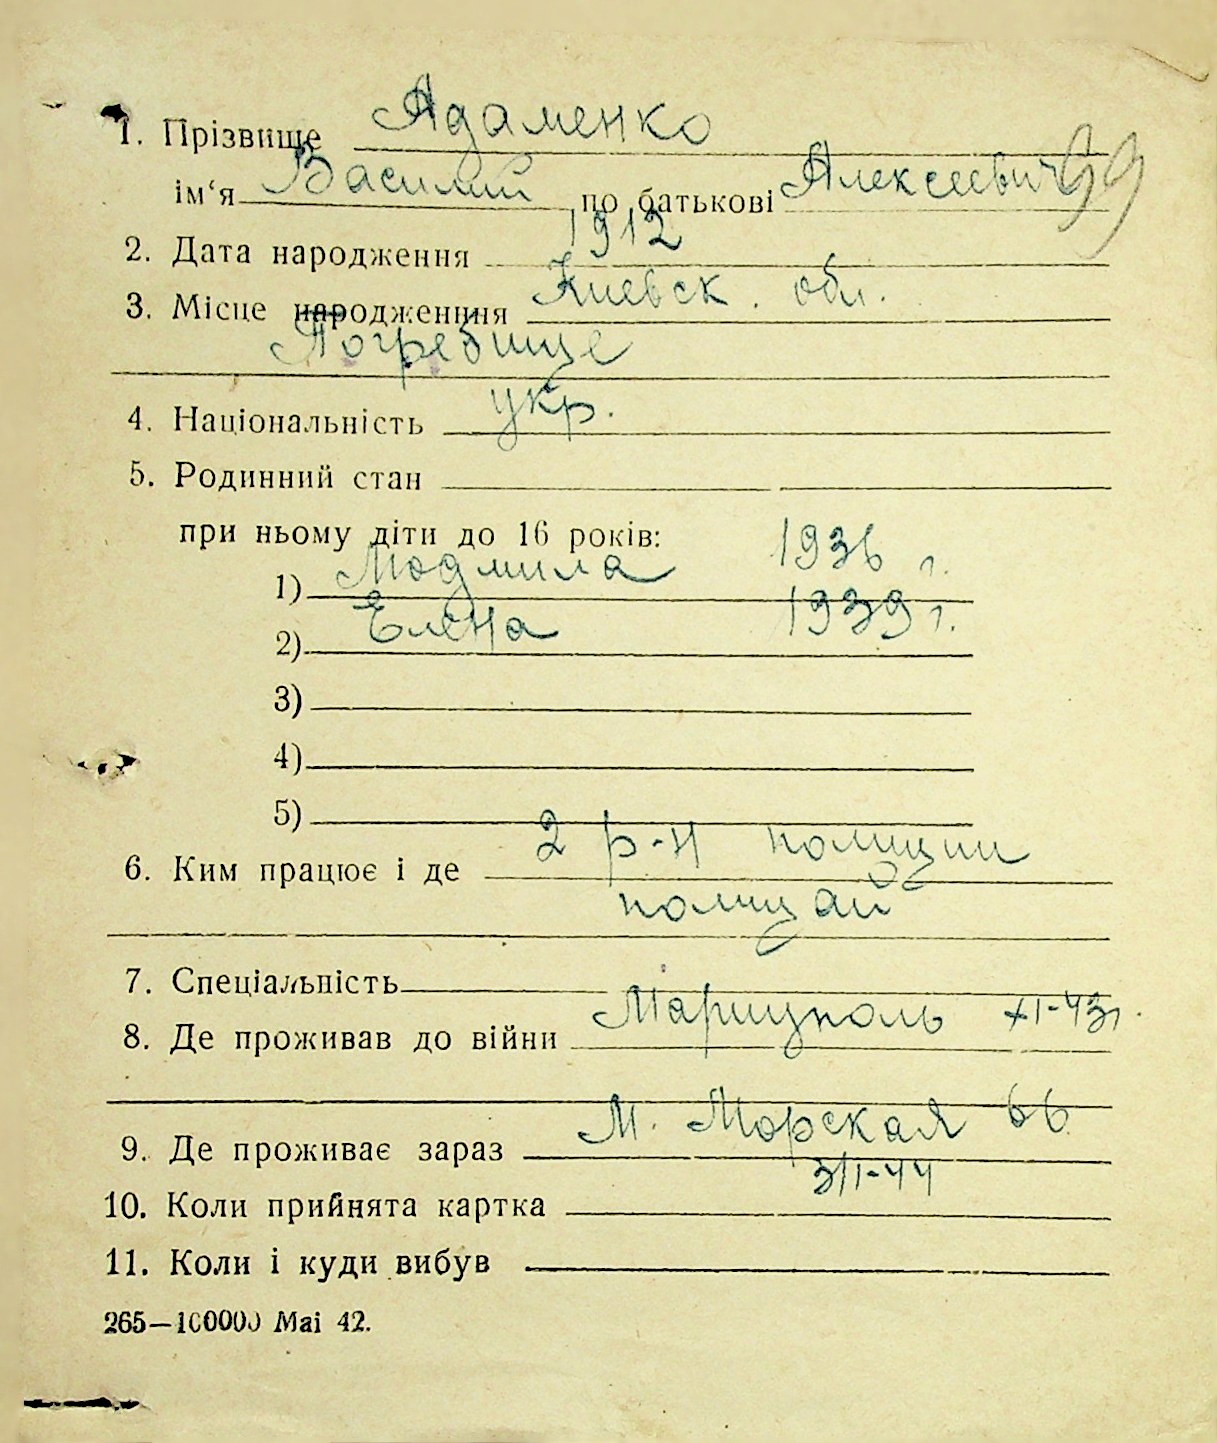 1. Прізвище Адаменко
ім‘я Василий по батькові Алексеевич 99
2. Дата народження 1912
3. Місце народженння Киевск. обл.
Погребище
4. Національність укр.
5. Родинний стан
при ньому діти до 16 років:
1) Людмила 1936 г.
2) Елена 1939 г.
3)
4)
5)
6. Ким працює і де 2 р-н полиции
полицай
7. Спеціальність
8. Де проживав до війни Мариуполь XI-43г.
9. Де проживає зараз М. Морская 66
10. Коли прийнята картка 3/I-44
11. Коли і куди вибув
265—100000 Mai 42.